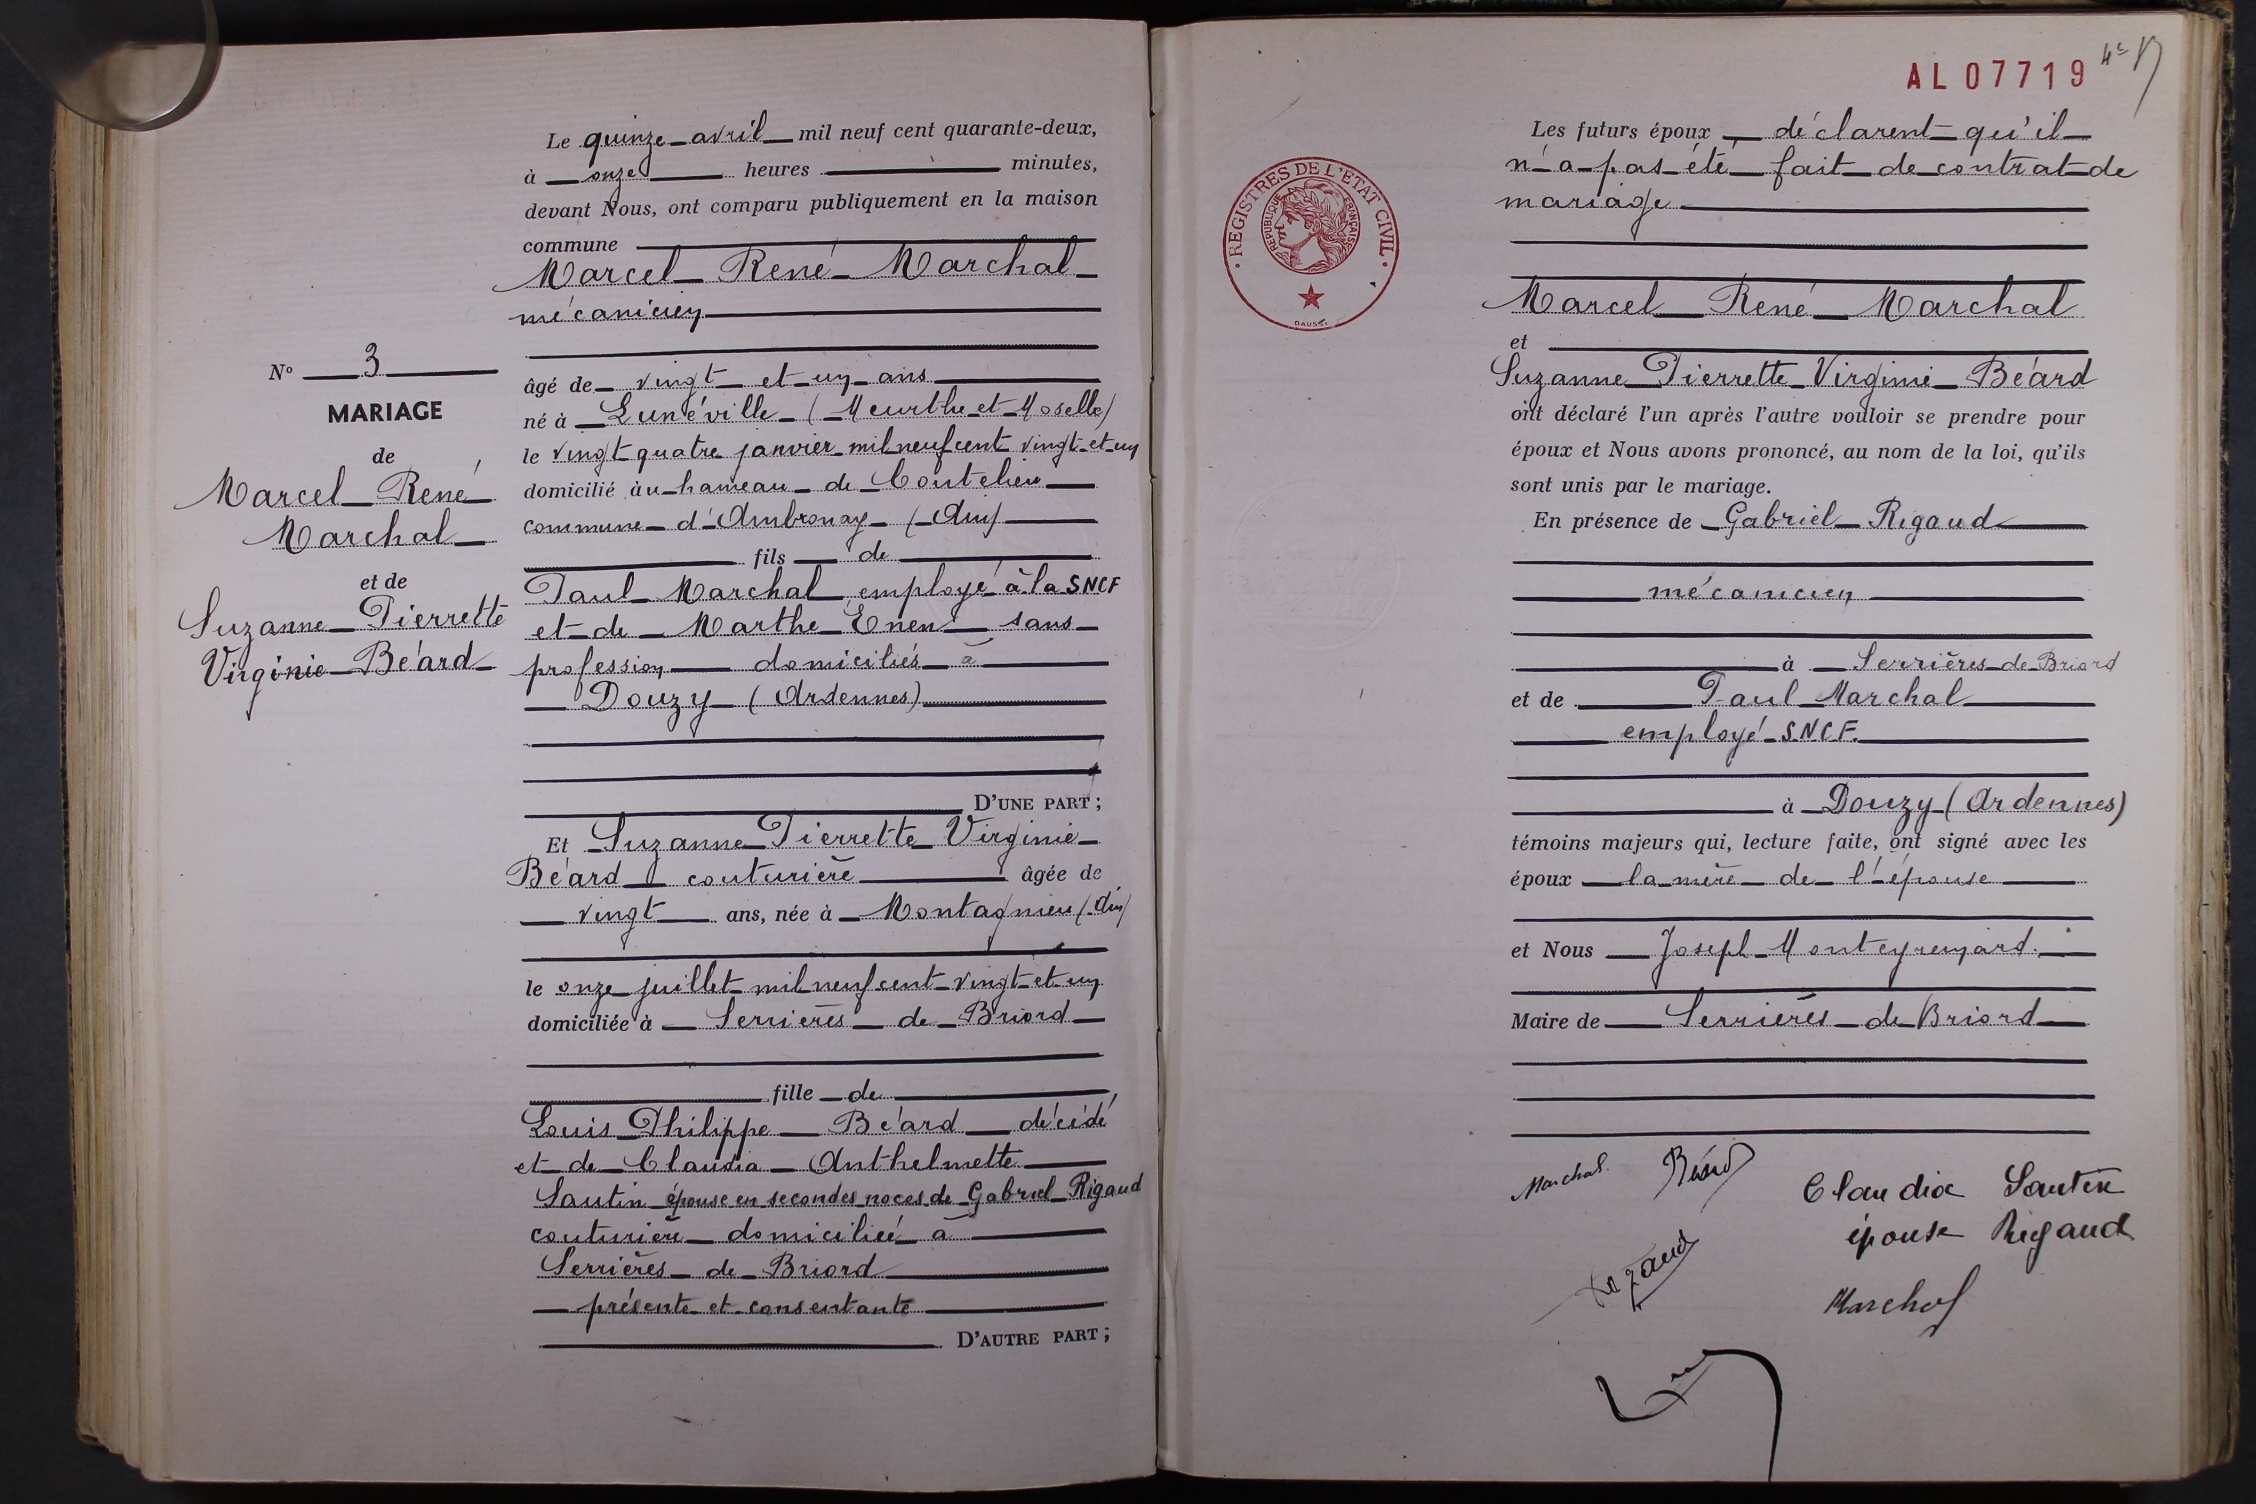 Le quinze avril mil neuf cent quarante-deux,
à onze heures minutes,
devant Nous, ont comparu publiquement en la maison
commune
Marcel René Marchal
mécanicien
âgé de vingt et un ans
né à Lunéville (Meurthe et Moselle)
le vingt quatre janvier mil neuf cent vingt et un
domicilié au hameau de Coutelieu
commune d'Ambronay (Ain)
fils de
Paul Marchal employé à la SNCF
et de Marthe Enen sans
profession domiciliés à
Douzy (Ardennes)
D'UNE PART;
Et Suzanne Pierrette Virginie
Béard couturière âgée de
vingt ans, née à Montagnieu (Ain)
le onze juillet mil neuf cent vingt et un
domiciliée à Serrières de Briord
fille de
Louis Philippe Béard décédé
et de Claudia Anthelmette
Sautin épouse en secondes noces de Gabriel Rigaud
couturière domiciliée à
Serrières de Briord
présente et consentante
D'AUTRE PART;
N° 3
MARIAGE
de
Marcel René
Marchal
et de
Suzanne Pierrette
Virginie Béard
AL 07719
Les futurs époux déclarent qu'il
n'a pas été fait de contrat de
mariage
REGISTRES DE L'ETAT CIVIL
REPUBLIQUE FRANÇAISE
Marcel René Marchal
et
Suzanne Pierrette Virginie Béard
ont déclaré l'un après l'autre vouloir se prendre pour
époux et Nous avons prononcé, au nom de la loi, qu'ils
sont unis par le mariage.
En présence de Gabriel Rigaud
mécanicien
à Serrières de Briord
et de Paul Marchal
employé S.N.C.F.
à Douzy (Ardennes)
témoins majeurs qui, lecture faite, ont signé avec les
époux la mère de l'épouse
et Nous Joseph Monteyremard.
Maire de Serrières de Briord
Marchal Béard
Claudia Sautin
épouse Rigaud
Rigaud
Marchal